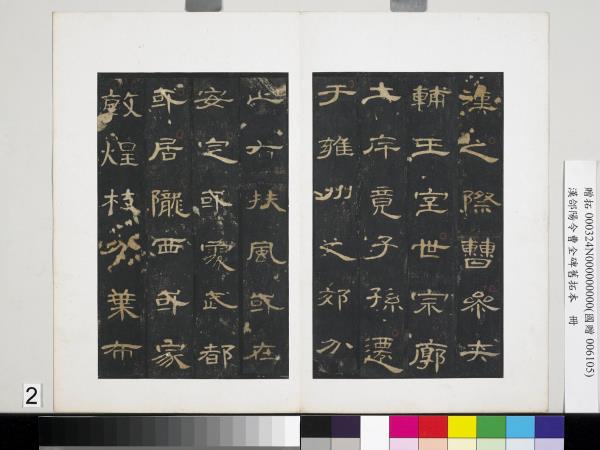 漢之際曹參夾
輔王室世宗廓
土斥竟子孫遷
于雍州之郊分
止右扶風或在
安定或處武都
或居隴西或家
敦煌枝分葉布
贈拓 000324N000000000(國贈 006105)
漢郃陽令曹全碑舊拓本 冊
2